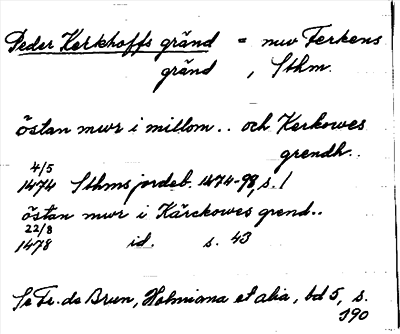 Peder Kerkhoffs gränd = nuv Ferkens
gränd, Sthm.
östan mur i millom.. och Kerkowes
grendh..
4/5
1474 Sthms jordeb. 1474-98, s. 1
östan mur i Kärckowes grend..
22/8
1478 id. s. 43
Se Fr. de Brun, Holmiana et alia, bd 5, s.
190